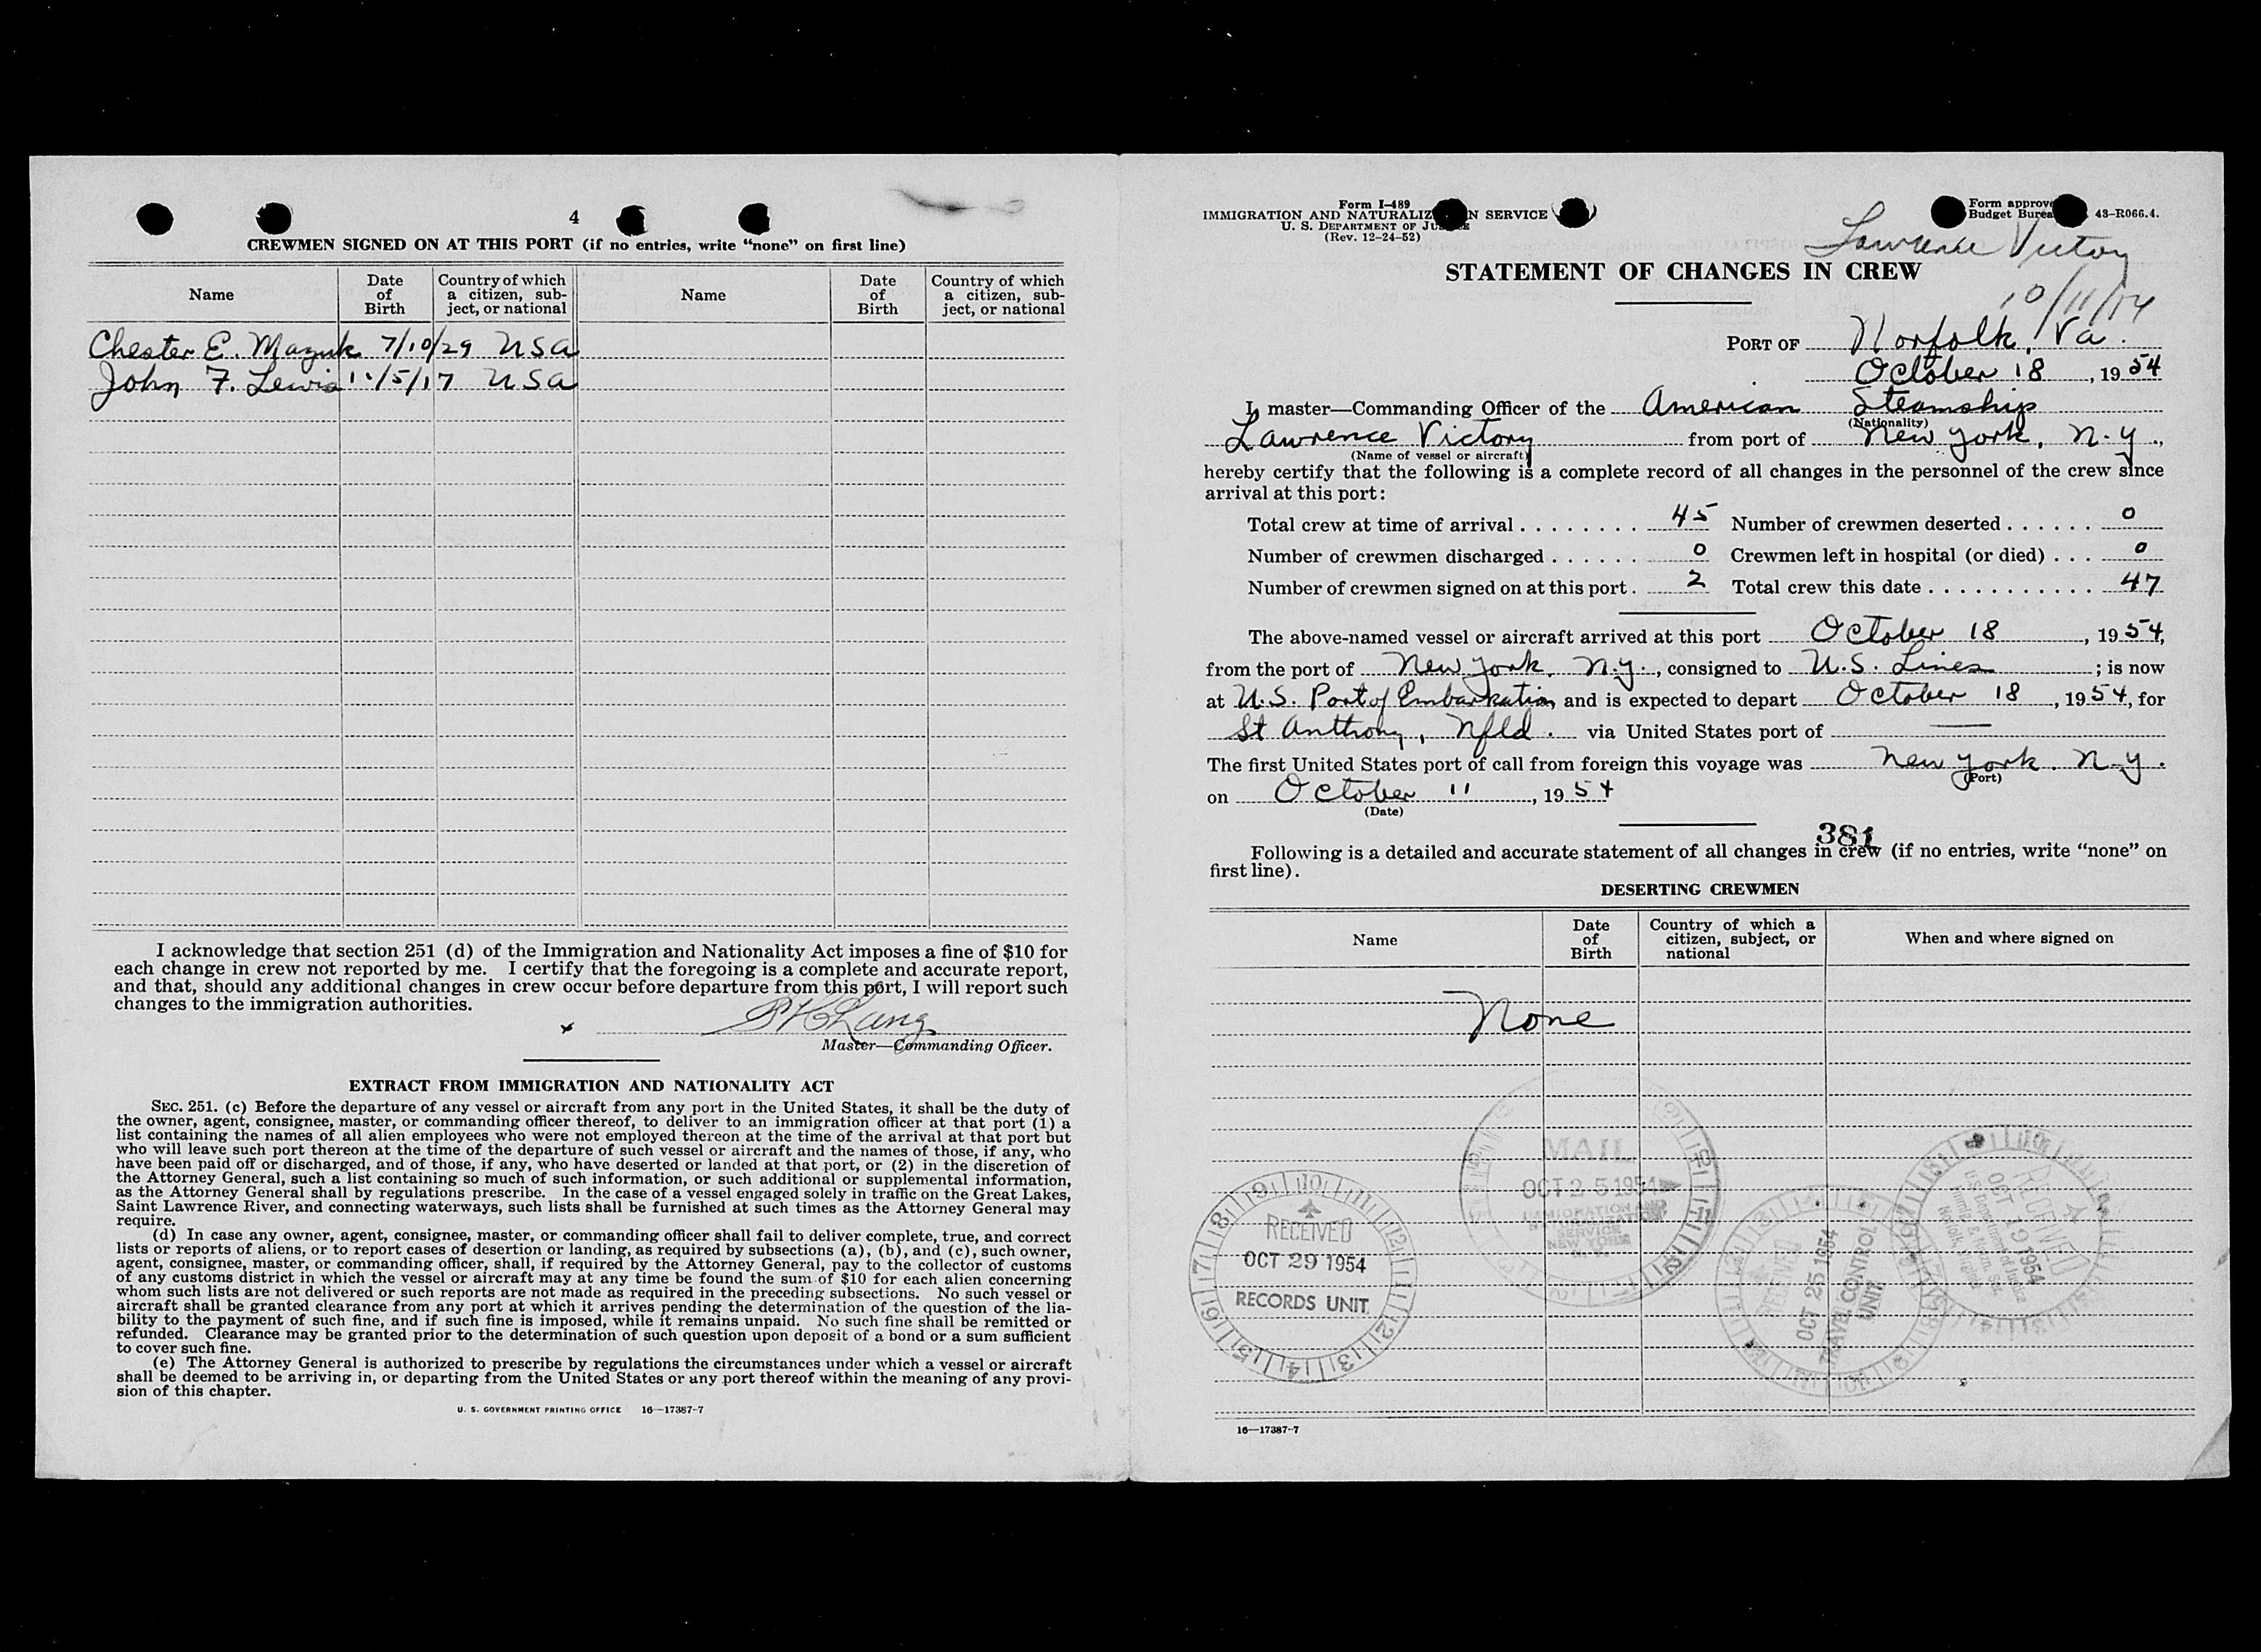 4
CREWMEN SIGNED ON AT THIS PORT (if no entries, write “none” on first line)
Name Date of Birth Country of which a citizen, subject, or national Name Date of Birth Country of which a citizen, subject, or national
Chester E. Mazuk 7/10/29 USA
John F. Lewis 11/5/17 USA
I acknowledge that section 251 (d) of the Immigration and Nationality Act imposes a fine of $10 for
each change in crew not reported by me. I certify that the foregoing is a complete and accurate report,
and that, should any additional changes in crew occur before departure from this port, I will report such
changes to the immigration authorities.
Lang
Master—Commanding Officer.
EXTRACT FROM IMMIGRATION AND NATIONALITY ACT
SEC. 251. (c) Before the departure of any vessel or aircraft from any port in the United States, it shall be the duty of
the owner, agent, consignee, master, or commanding officer thereof, to deliver to an immigration officer at that port (1) a
list containing the names of all alien employees who were not employed thereon at the time of the arrival at that port but
who will leave such port thereon at the time of the departure of such vessel or aircraft and the names of those, if any, who
have been paid off or discharged, and of those, if any, who have deserted or landed at that port, or (2) in the discretion of
the Attorney General, such a list containing so much of such information, or such additional or supplemental information,
as the Attorney General shall by regulations prescribe. In the case of a vessel engaged solely in traffic on the Great Lakes,
Saint Lawrence River, and connecting waterways, such lists shall be furnished at such times as the Attorney General may
require.
(d) In case any owner, agent, consignee, master, or commanding officer shall fail to deliver complete, true, and correct
lists or reports of aliens, or to report cases of desertion or landing, as required by subsections (a), (b), and (c), such owner,
agent, consignee, master, or commanding officer, shall, if required by the Attorney General, pay to the collector of customs
of any customs district in which the vessel or aircraft may at any time be found the sum of $10 for each alien concerning
whom such lists are not delivered or such reports are not made as required in the preceding subsections. No such vessel or
aircraft shall be granted clearance from any port at which it arrives pending the determination of the question of the lia-
bility to the payment of such fine, and if such fine is imposed, while it remains unpaid. No such fine shall be remitted or
refunded. Clearance may be granted prior to the determination of such question upon deposit of a bond or a sum sufficient
to cover such fine.
(e) The Attorney General is authorized to prescribe by regulations the circumstances under which a vessel or aircraft
shall be deemed to be arriving in, or departing from the United States or any port thereof within the meaning of any provi-
sion of this chapter.
U. S. GOVERNMENT PRINTING OFFICE 16—17387-7
Form I-489
IMMIGRATION AND NATURALIZ N SERVICE
U. S. DEPARTMENT OF JUSTICE
(Rev. 12-24-52)
Form approve
Budget Burea 43-R066.4.
Lawrence Victory
10/11/54
STATEMENT OF CHANGES IN CREW
PORT OF Norfolk, Va.
October 18, 1954
I, master—Commanding Officer of the American Steamship
(Nationality)
Lawrence Victory from port of New York, N.Y.,
(Name of vessel or aircraft)
hereby certify that the following is a complete record of all changes in the personnel of the crew since
arrival at this port:
Total crew at time of arrival 45 Number of crewmen deserted 0
Number of crewmen discharged 0 Crewmen left in hospital (or died) 0
Number of crewmen signed on at this port 2 Total crew this date 47
The above-named vessel or aircraft arrived at this port October 18, 1954,
from the port of New York, N.Y., consigned to U.S. Lines; is now
at U.S. Port of Embarkation and is expected to depart October 18, 1954, for
St Anthony, Nfld. via United States port of —
The first United States port of call from foreign this voyage was New York. N.Y.
(Port)
on October 11, 1954
(Date)
381
Following is a detailed and accurate statement of all changes in crew (if no entries, write “none” on
first line).
DESERTING CREWMEN
Name Date of Birth Country of which a citizen, subject, or national When and where signed on
None
MAIL
OCT 25 1954
IMMIGRATION AND
NATURALIZATION
SERVICE
NEW YORK
RECEIVED
OCT 29 1954
RECORDS UNIT
RECEIVED
OCT 25 1954
TRAVEL CONTROL
UNIT
RECEIVED
OCT 19 1954
U.S. Department of Justice
Immig. & Natzn. Ser.
Norfolk, Virginia
16—17387-7